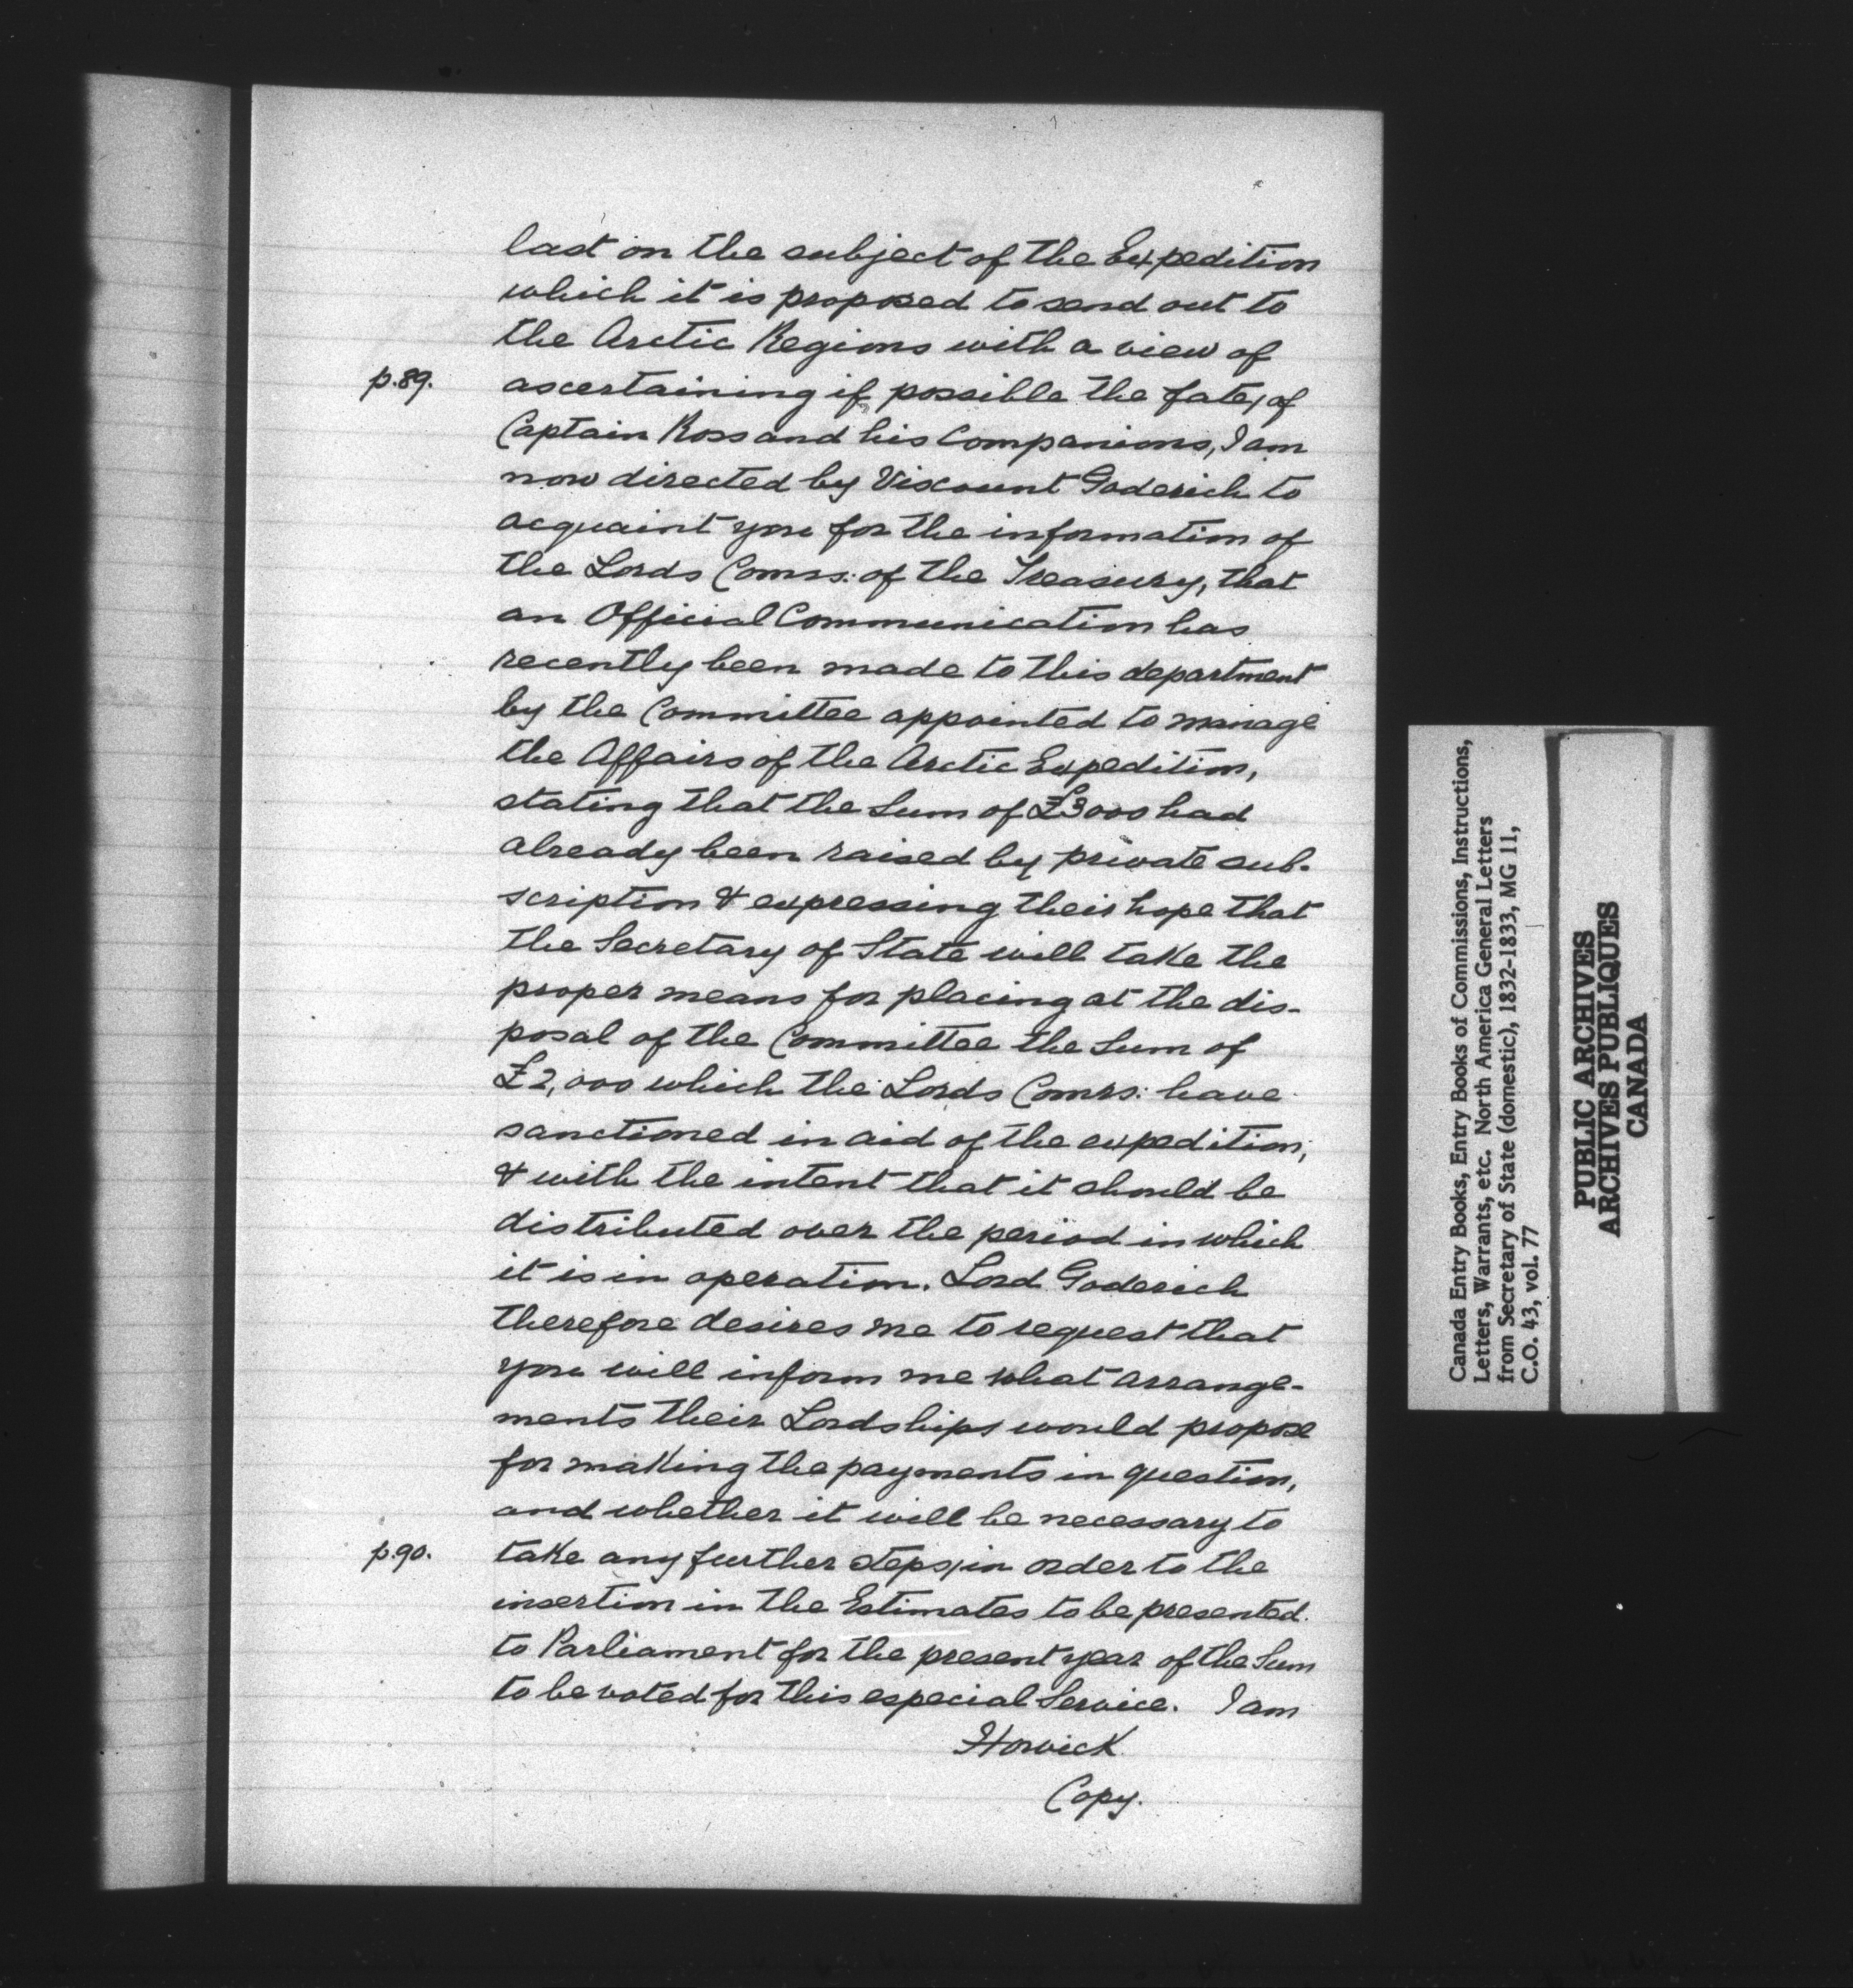 last on the subject of the Expedition
which it is proposed to send out to
the Arctic Regions with a view of
p.89. ascertaining if possible the fate, of
Captain Ross and his Companions, I am
now directed by Viscount Goderich to
acquaint you for the information of
the Lords Comrs: of the Treasury, that
an Official Communication has
recently been made to this department
by the Committee appointed to manage
the Affairs of the Arctic Expedition,
stating that the Sum of £3000 had
already been raised by private sub-
scription & expressing their hope that
the Secretary of State will take the
proper means for placing at the dis-
posal of the Committee the Sum of
£2,000 which the Lords Comrs: have
sanctioned in aid of the expedition,
& with the intent that it should be
distributed over the period in which
it is in operation. Lord Goderich
therefore desires me to request that
you will inform me what arrange-
ments their Lordships would propose
for making the payments in question,
and whether it will be necessary to
p.90. take any further steps, in order to the
insertion in the Estimates to be presented
to Parliament for the present year of the Sum
to be voted for this especial Service. I am
Howick
Copy.
Canada Entry Books, Entry Books of Commissions, Instructions,
Letters, Warrants, etc. North America General Letters
from Secretary of State (domestic), 1832-1833, MG 11,
C.O. 43, vol. 77
PUBLIC ARCHIVES
ARCHIVES PUBLIQUES
CANADA